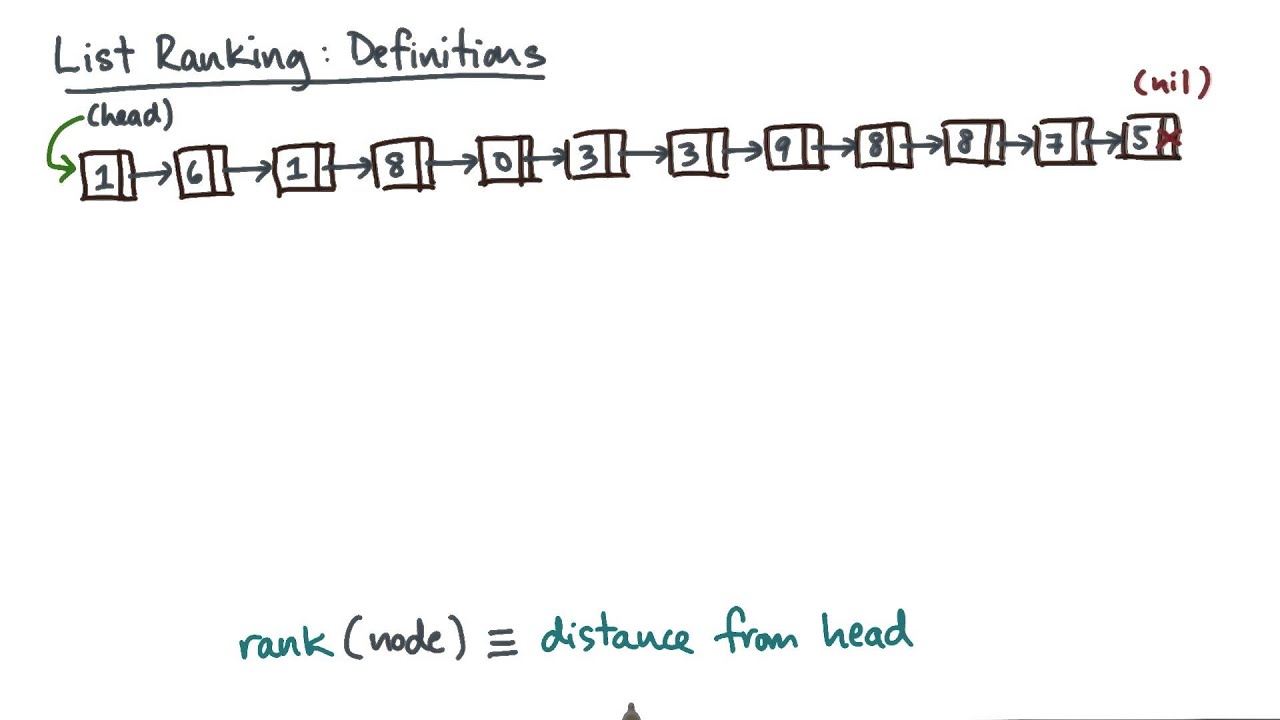 List Ranking: Definitions
(nil)
(head)
1 6 1 8 0 3 3 9 8 8 7 5
rank (node) ≡ distance from head